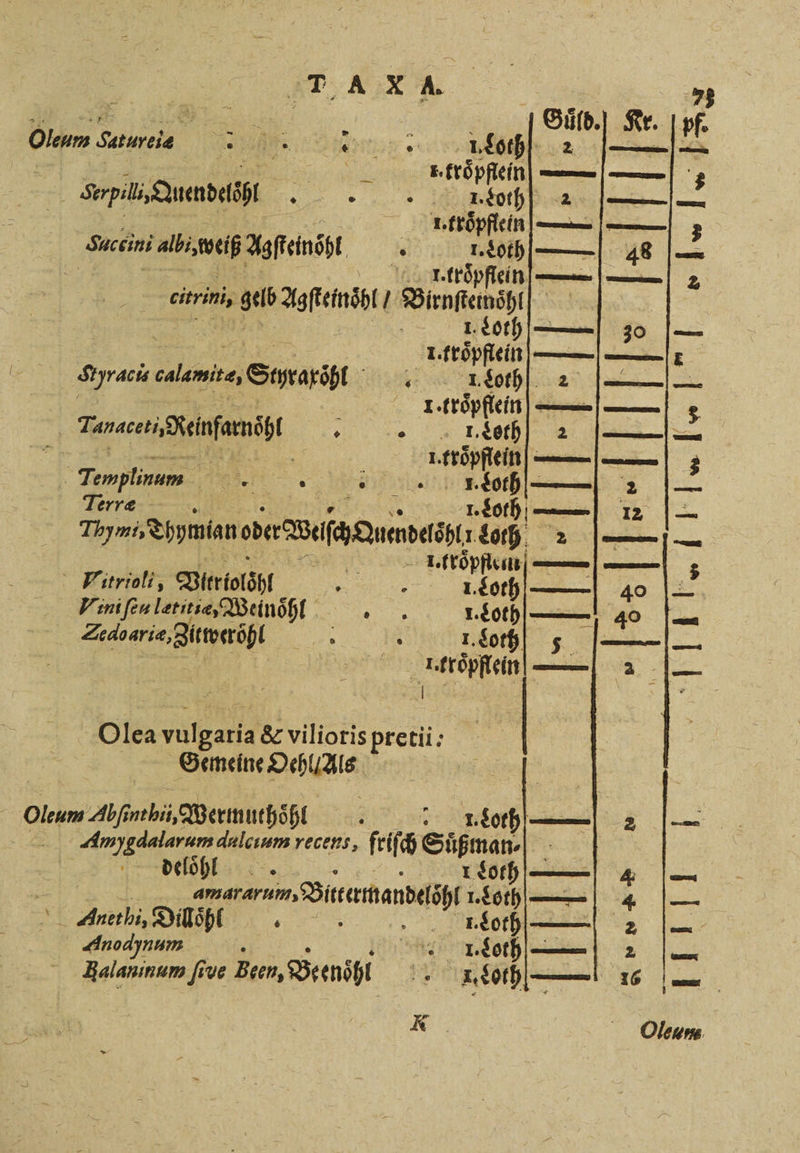 TAXA.
75
Güld. Kr. pf.
Oleum Satureiæ : . : . 1.Loth 2 — —
1.tröpflein — — 5
Serpilli, Quendelöhl . . . 1.Loth 2 — —
1.tröpflein — — 5
Succini albi, weiß Agsteinöhl . 1.Loth — 48 —
1.tröpflein — — 2
citrini, gelb Agsteinöhl / Birnsteinöhl
1.Loth — 30 —
1.tröpflein — — 1
Styracis calamitæ, Styraxöhl . 1.Loth 2 — —
1.tröpflein — — 5
Tanaceti, Reinfarnöhl . . 1.Loth 2 — —
1.tröpflein — — 5
Templinum . . . . 1.Loth — 2 —
Terræ . . . . 1.Loth — 12 —
Thymi, Thymian oder Welsch Quendelöhl, 1 Loth 2 — —
1.tröpflein — — 5
Vitrioli, Vitriolöhl . . 1.Loth — 40 —
Vini seu lætitiæ, Weinöhl . . 1.Loth — 40 —
Zedoariæ, Zittweröhl . . 1.Loth 5 — —
1.tröpflein — 2 —
Olea vulgaria & vilioris pretii:
Gemeine Oehl/ Als
Oleum Absinthii, Wermuthöhl . : 1.Loth — 2 —
Amygdalarum dulcium recens, frisch Süßman-
delöhl . . . 1 Loth — 4 —
amararum, Bittermandelöhl 1.Loth — 4 —
Anethi, Dillöhl . . . 1.Loth — 2 —
Anodynum . . . . 1.Loth — 2 —
Balaninum sive Been, Beenöhl . 1.Loth — 16 —
K
Oleum